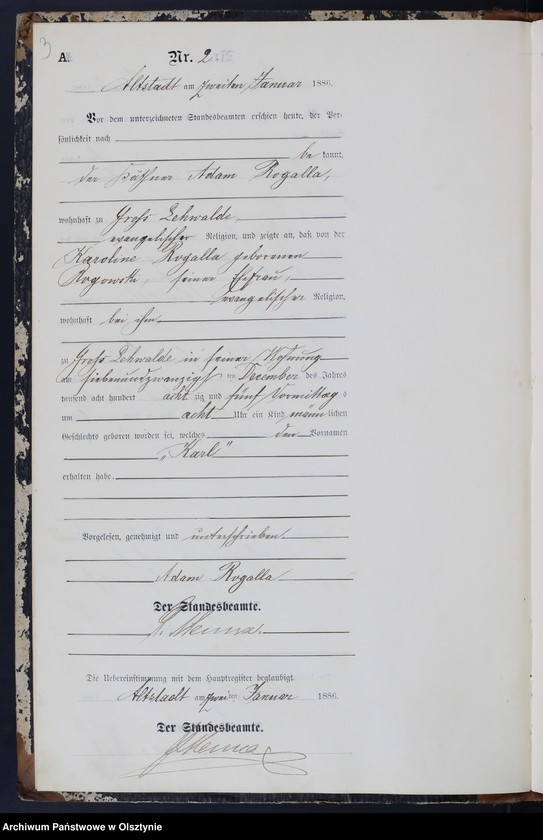 3
A. Nr. 2
Altstadt am zweiten Januar 1886.
Vor dem unterzeichneten Standesbeamten erschien heute, der Per-
sönlichkeit nach
be kannt,
der Käthner Adam Rogalla,
wohnhaft zu Groß Lehwalde,
evangelischer Religion, und zeigte an, daß von der
Karoline Rogalla geborenen
Rogowski, seiner Ehefrau,
evangelischer Religion,
wohnhaft bei ihm
zu Groß Lehwalde in seiner Wohnung
am siebenundzwanzigsten December des Jahres
tausend acht hundert acht zig und fünf Vormittag s
um acht Uhr ein Kind männ lichen
Geschlechts geboren worden sei, welches den Vornamen
„Karl“
erhalten habe.
Vorgelesen, genehmigt und unterschrieben
Adam Rogalla
Der Standesbeamte.
Die Uebereinstimmung mit dem Hauptregister beglaubigt.
Altstadt am zwei ten Januar 1886.
Der Standesbeamte.
Archiwum Państwowe w Olsztynie